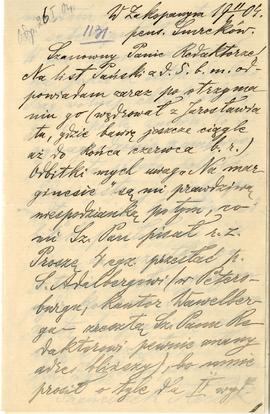 W Zakopanem 17/II 04.
pens. Smreków.
1131
Szanowny Panie Redaktorze!
Na list Pański a d. 5. b. m. od-
powiadam zaraz po otrzyma-
niu go (wędrował z Jarosławia
tu, gdzie bawię jeszcze ciągle
aż do końca czerwca b. r.)
Odbitki mych uwag "Na mar-
ginesie" są mi prawdziwą
niespodzianką po tym, co
mi Sz. Pan pisał r. z.
Proszę 1 egz. przesłać p.
S. Adalbergowi (w Peters-
burgu, kantor Wawelber-
ga – zresztą Sz. Panu Re-
daktorowi pewnie znany
adres bliższy), bo mnie
prosił o tyle dla II wyd.